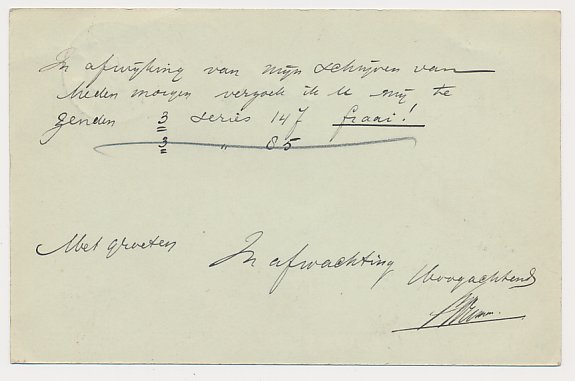 In afwijking van mijn schrijven van
heden morgen verzoek ik U mij te
zenden 3 series 147 fraai!
3 " 85
Met groeten
In afwachting
Hoogachtend